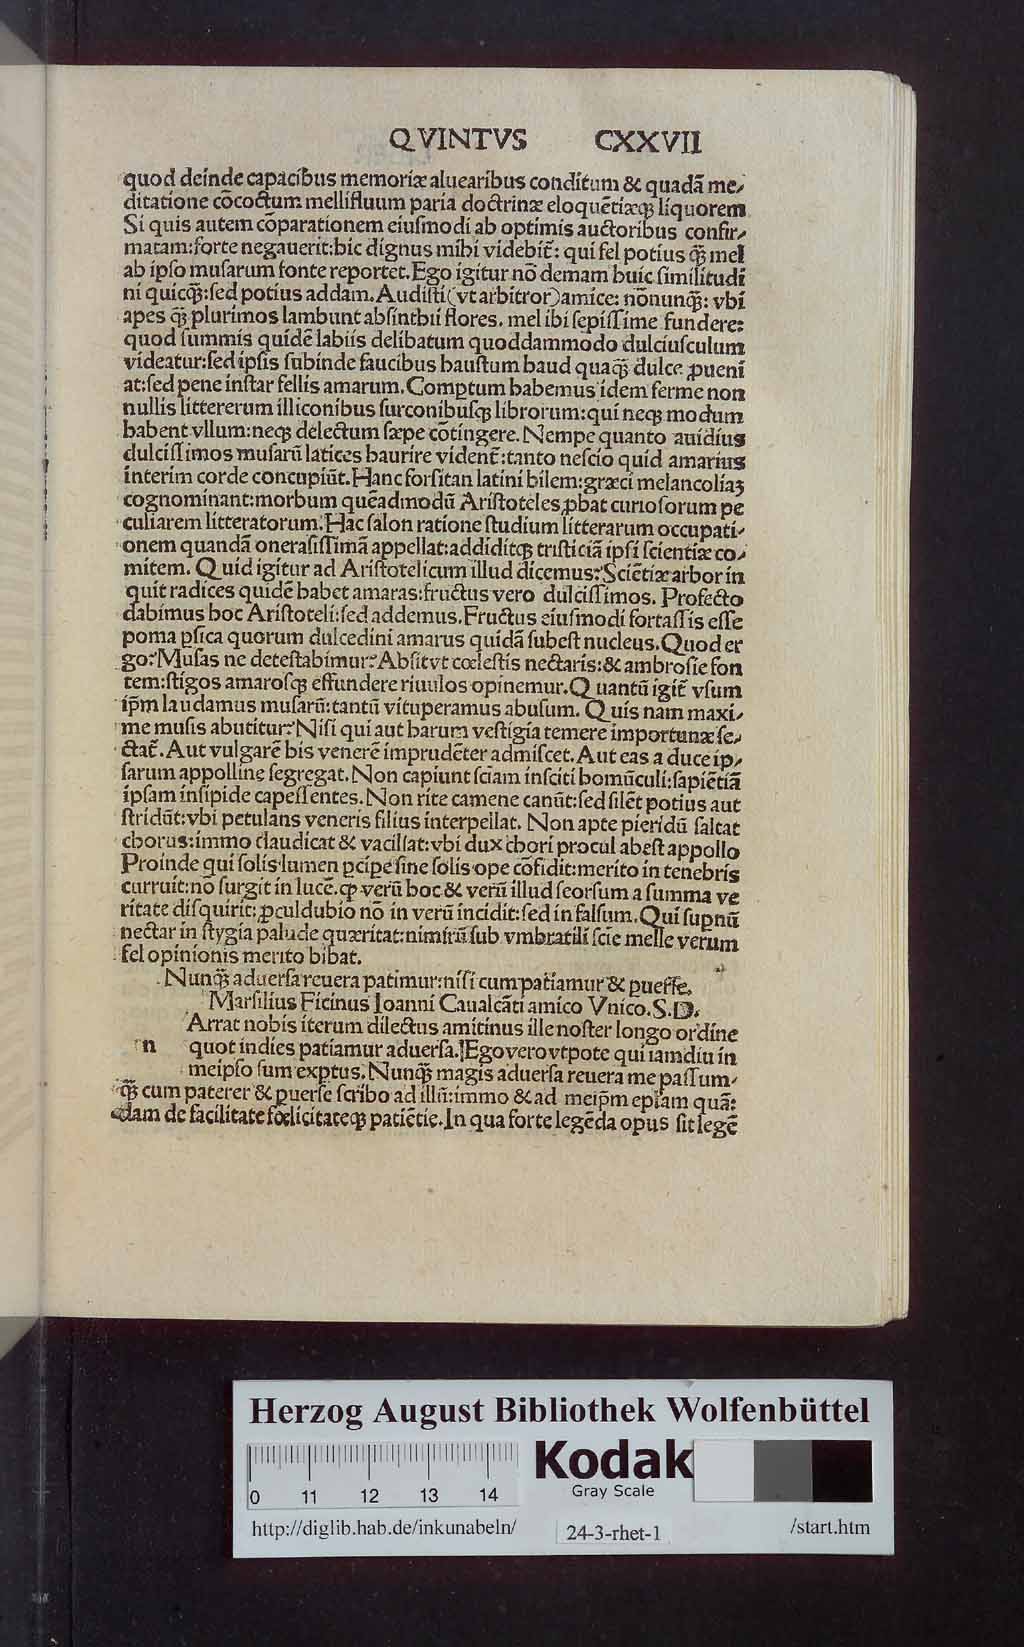 QVINTVS CXXVII
quod deinde capacibus memoriæ aluearibus conditum & quadã me⸗
ditatione cõcoctum mellifluum paria doctrinæ eloquẽtiæqꝫ liquorem
Si quis autem cõparationem eiusmodi ab optimis auctoribus confir⸗
matam:forte negauerit:hic dignus mihi videbit̃: qui fel potius q̃ꝫ mel
ab ipso musarum fonte reportet. Ego igitur nõ demam huic similitudi
ni quicq̃ꝫ:sed potius addam. Audisti (vt arbitror) amice: nõnunq̃ꝫ: vbi
apes q̃ꝫ plurimos lambunt absinthii flores, mel ibi sepissime fundere:
quod summis quidẽ labiis delibatum quoddammodo dulciusculum
videatur:sed ipsis subinde faucibus haustum haud quaq̃ꝫ dulce ꝓueni
at:sed pene instar fellis amarum. Comptum habemus idem ferme non
nullis littererum illiconibus surconibusqꝫ librorum:qui neqꝫ modum
habent vllum:neqꝫ delectum sæpe cõtingere. Nempe quanto auidius
dulcissimos musarũ latices haurire vident̃:tanto nescio quid amarius
interim corde concupiũt. Hanc forsitan latini bilem:græci melancoliaꝫ
cognominant:morbum quẽadmodũ Aristoteles ꝓbat curiosorum pe
culiarem litteratorum. Hac salon ratione studium litterarum occupati⸗
onem quandã onerasissimã appellat:addiditqꝫ tristiciã ipsi scientiæ co⸗
mitem. Quid igitur ad Aristotelicum illud dicemus? Sciẽtiæ arbor in
quit radices quidẽ habet amaras:fructus vero dulcissimos. Profecto
dabimus hoc Aristoteli:sed addemus. Fructus eiusmodi fortassis esse
poma ꝑsica quorum dulcedini amarus quidã subest nucleus. Quod er
go? Musas ne detestabimur? Absit vt cœlestis nectaris:& ambrosie fon
tem:stigos amarosqꝫ effundere riuulos opinemur. Quantũ igit̃ vsum
ip̃m laudamus musarũ:tantũ vituperamus abusum. Quis nam maxi⸗
me musis abutitur? Nisi qui aut harum vestigia temere importunæ se⸗
ctat̃. Aut vulgarẽ his venerẽ imprudẽter admiscet. Aut eas a duce ip⸗
sarum appolline segregat. Non capiunt sc̃iam insciti homũculi:sapiẽtiã
ipsam insipide capessentes. Non rite camene canũt:sed silẽt potius aut
stridũt:vbi petulans veneris filius interpellat. Non apte pieridũ saltat
chorus:immo claudicat & vacillat:vbi dux chori procul abest appollo
Proinde qui solis lumen ꝑcipe sine solis ope cõfidit:merito in tenebris
curruit:nõ surgit in lucẽ. ꝙ verũ hoc & verũ illud seorsum a summa ve
ritate disquirit: ꝓculdubio nõ in verũ incidit:sed in falsum. Qui supnũ
nectar in stygia palude quæritat:nimirũ sub vmbratili scie melle verum
fel opinionis merito bibat.
Nunq̃ꝫ aduersa reuera patimur:nisi cum patiamur & ꝑuerse.
Marsilius Ficinus Ioanni Caualcãti amico Vnico. S. D.
n Arrat nobis iterum dilectus amitinus ille noster longo ordine
quot indies patiamur aduersa. Ego vero vtpote qui iamdiu in
meipso sum exptus. Nunq̃ꝫ magis aduersa reuera me passum⸗
q̃ꝫ cum paterer & ꝑuerse scribo ad illũ:immo & ad meip̃m ep̃lam quã:
dam de facilitate fœlicitateqꝫ patiẽtie. In qua forte legẽda opus sit legẽ
Herzog August Bibliothek Wolfenbüttel
0 11 12 13 14
Kodak
Gray Scale
http://diglib.hab.de/inkunabeln/
24-3-rhet-1
/start.htm